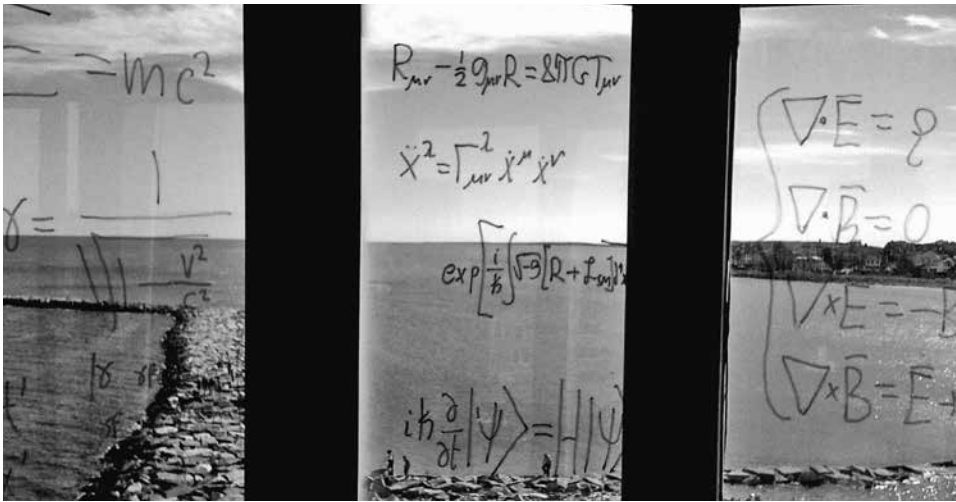 = mc²
γ = 1 / √(1 - v²/c²)
γ γβ
R_μν - ½ g_μν R = 8πG T_μν
ẍ^λ = Γ^λ_μν ẋ^μ ẋ^ν
exp[i/ħ ∫√-g [R + ℒ_SM] d⁴x
iħ ∂/∂t |ψ⟩ = H|ψ⟩
∇·E̅ = ρ
∇·B̅ = 0
∇×E̅ = -B
∇×B̅ = E +